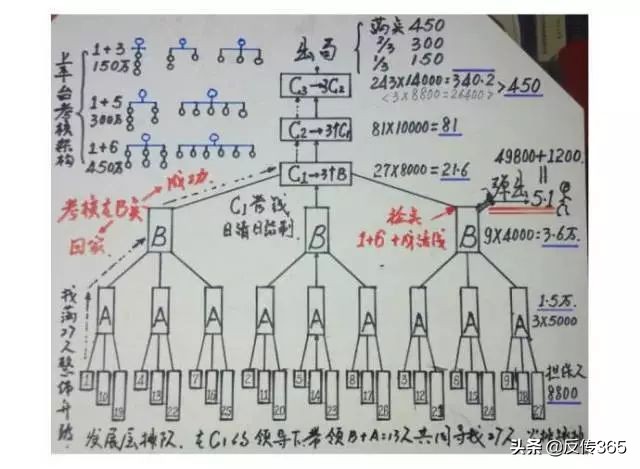 上平台考核架构
1+3
150万
1+5
300万
1+6
450万
出局
满实450
2/3 300
1/3 150
C3→3C2
243×14000=340.2
>450
<3×8800=26400>
C2→3个C1
81×10000=81
C1→3个B
27×8000=21.6
49800+1200
=
5.1
成功
考核在B实
回家
C1常线
日清日结制
检实
弹出
B
B
B
9×4000=3.6万
A
A
A
A
A
A
A
A
A
1.5万
3×5000
担保人
8800
1
10
19
4
13
22
7
16
25
2
11
20
5
14
23
8
17
26
3
12
21
6
15
24
9
18
27
找满27人整体升
发展层排队,在C1的领导下,带领B+A=13人共同寻找27人
头条 @反传365